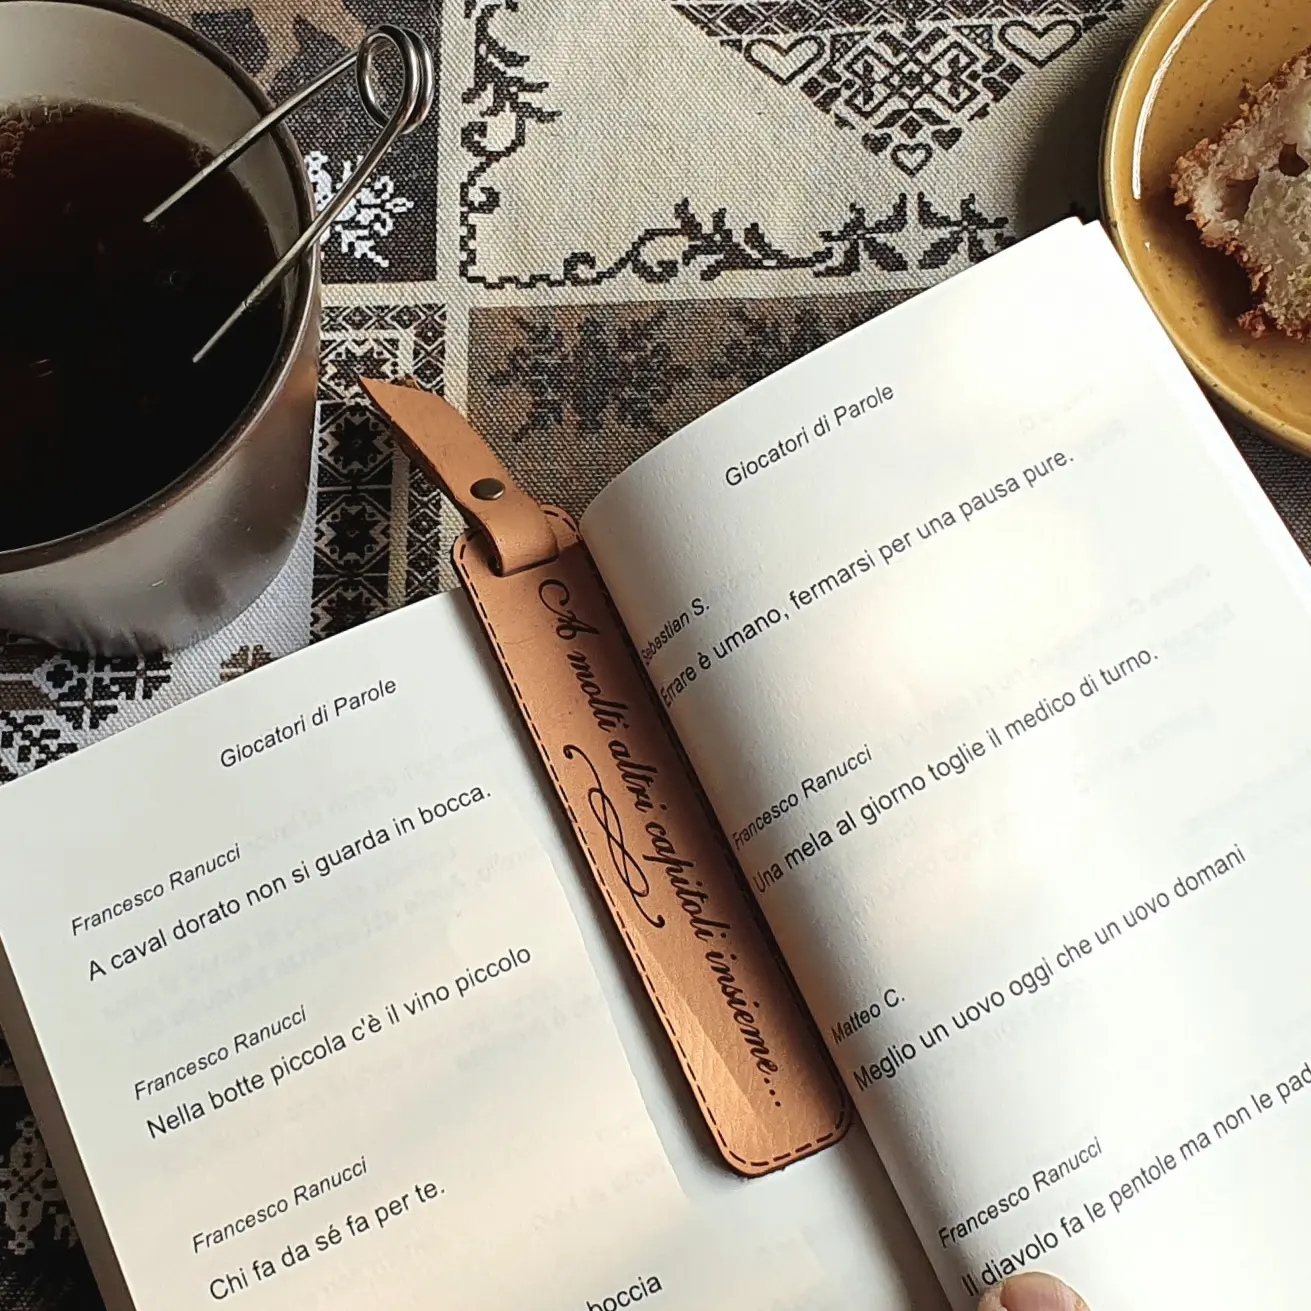 Giocatori di Parole
Francesco Ranucci
A caval dorato non si guarda in bocca.
Francesco Ranucci
Nella botte piccola c'è il vino piccolo
Francesco Ranucci
Chi fa da sé fa per te.
boccia
A molti altri capitoli insieme...
Giocatori di Parole
Sebastian S.
Errare è umano, fermarsi per una pausa pure.
Francesco Ranucci
Una mela al giorno toglie il medico di turno.
Matteo C.
Meglio un uovo oggi che un uovo domani
Francesco Ranucci
Il diavolo fa le pentole ma non le pad